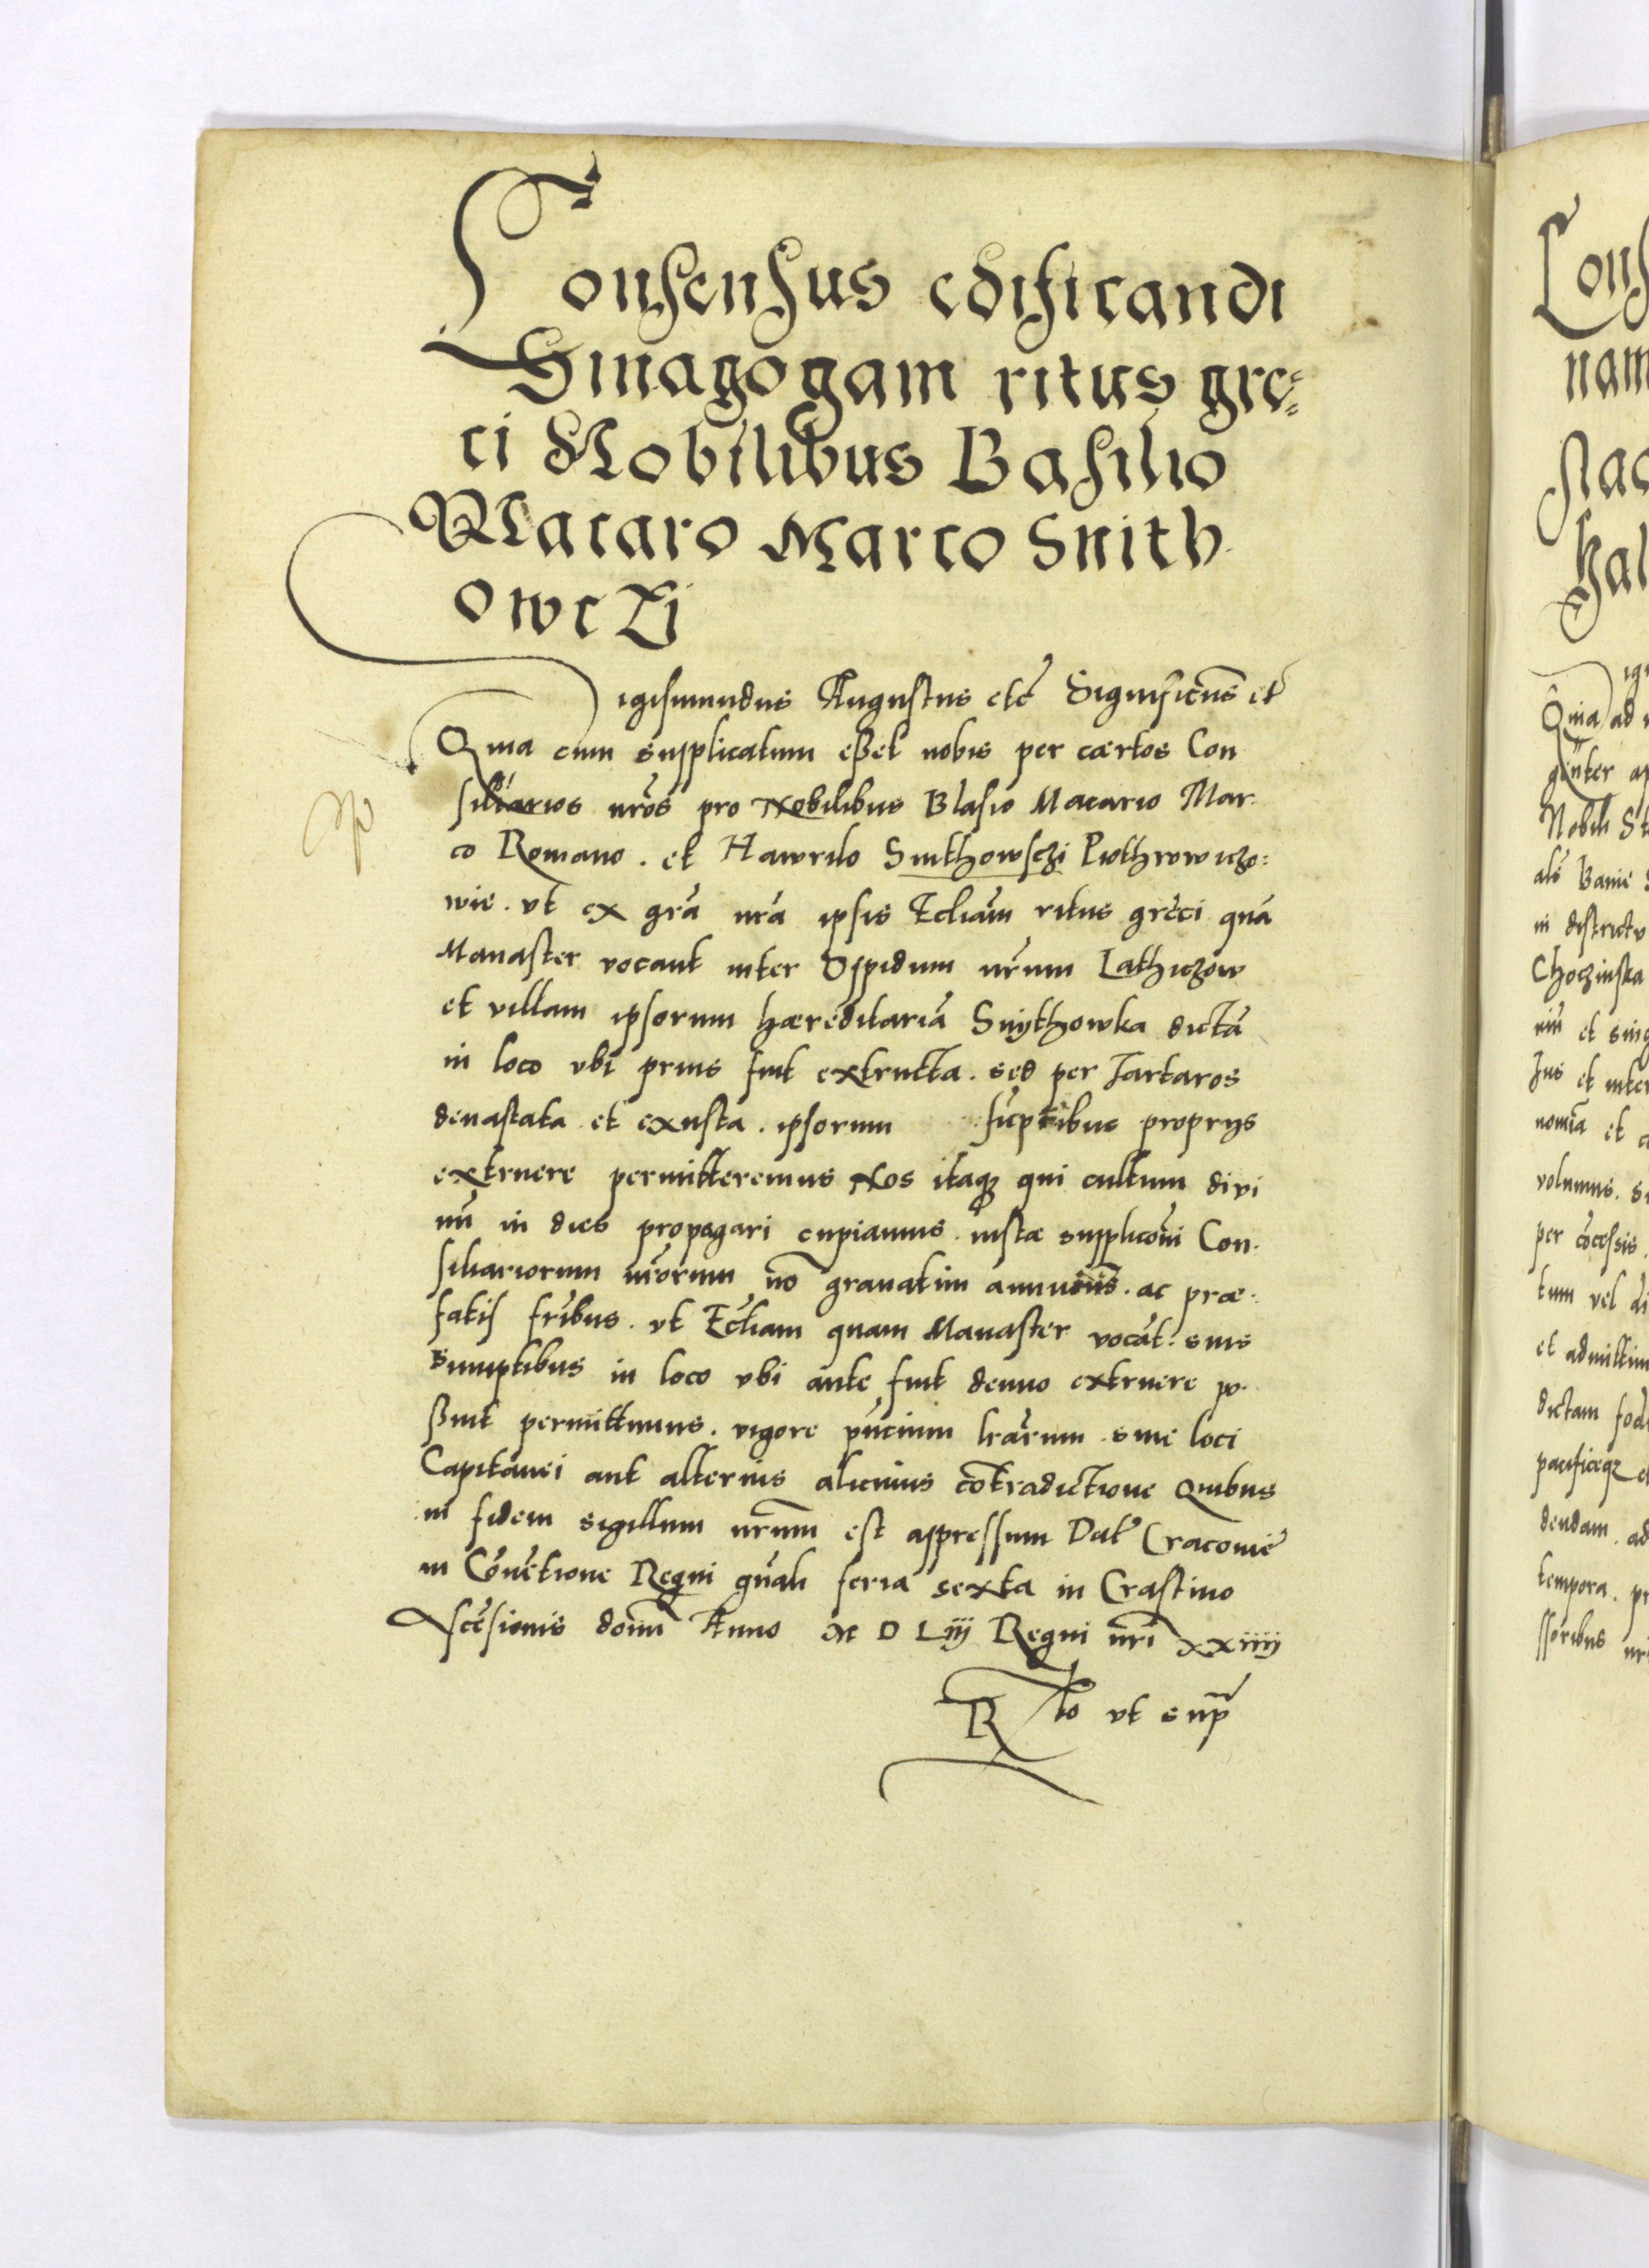 Consensus edificandi
Sinagogam ritus gre=
ci Nobilibus Basilio
Macaro Marco Snith
owczi
Sigismundus Augustus etc̃ Significam̃s et̃
Quia cum supplicatum eßet nobis per cærtos Con
siliarios nr̃os pro Nobilibus Blasio Macario Mar
co Romano . et Hawrilo Snithowsczi
wie . vt ex gr̃a nr̃a ipsis Eccliãm ritus greci quã
Manaster vocant inter Oppidum nr̃um Lathiczow
et villam ipsorum hæreditariã Snÿthowka dictã
in loco vbi prius fuit extructta . sed per Tartaros
deuastata et exusta . ipsorum sũptibus proprÿs
extruere permitteremus Nos itaqꝫ qui cultum divi
nũ in dies propagari cupiamus . iustæ supplicõni Con
siliariorum nr̃orum nõ grauatim annuim̃s . ac præ
fatis fr̃ibus . vt Eccl̃iam quam Manaster vocãt : suis
Sumptibus in loco vbi ante fuit denuo extruere po
ßint permittimus . vigore pñcium lr̃arum . sine loci
Capitanei aut alterius alicuius cõtradictione Quibus
in fidem sigillum nr̃um est appressum Dat̃ Cracouiẽ
in Cõuẽtione Regni gñali feria sexta in Crastino
Ascẽsionis domĩ Anno M D Liij Regni nr̃i xxiiij
R̃lo vt sup̃
Cons
nam
Quia ad
Nobili St
in districtu
et sing
Jus et inter
nomiã et
volumus . s
per cõcessis
tum vel
et admittim
dictam fod
pacificeqꝫ
dendam . ad
tempora . pr
ssoribus nr